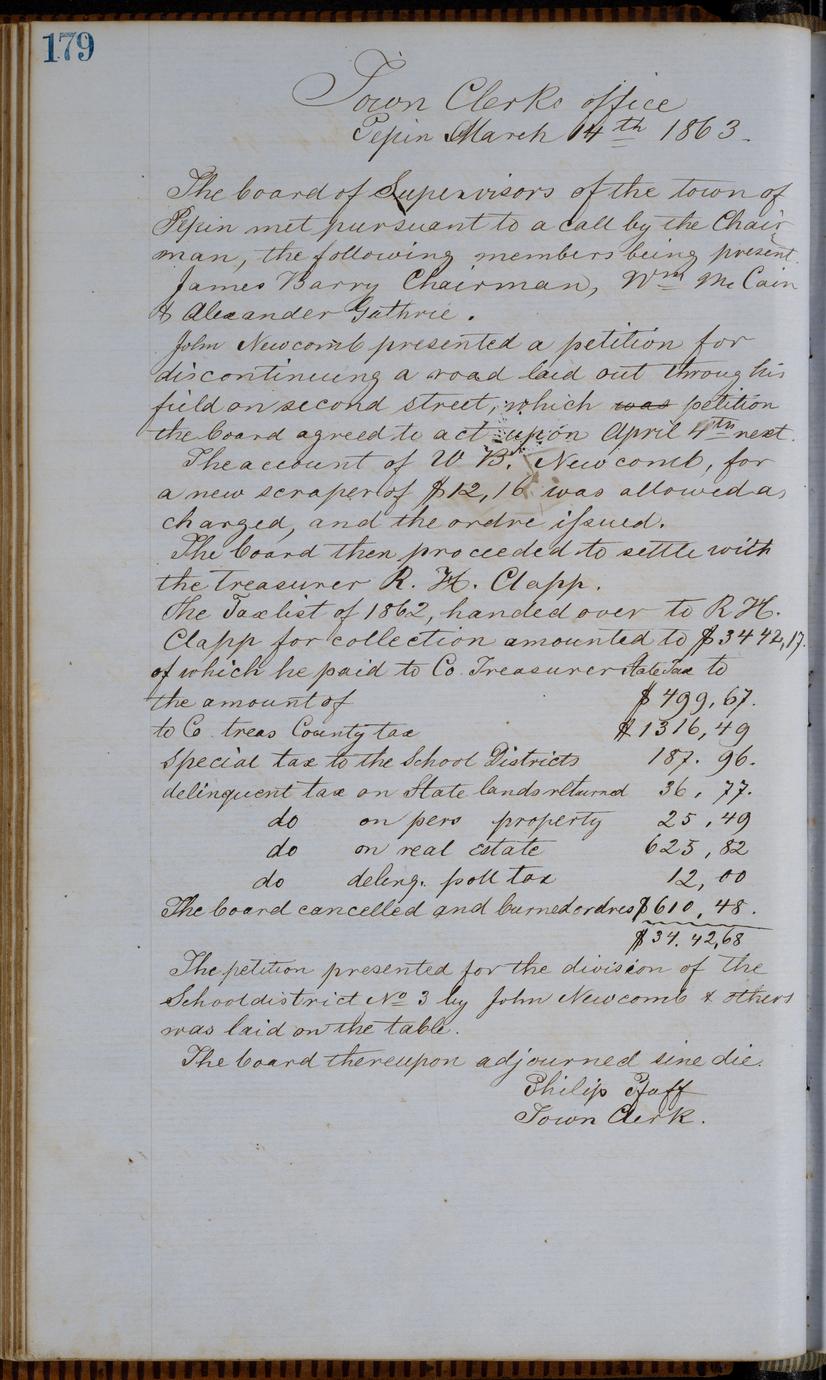 179
Town Clerks office
Pepin March 14th 1863.
The board of Supervisors of the town of
Pepin met pursuant to a call by the Chair
man, the following members being present.
James Barry Chairman, Wm McCain
& Alexander Guthrie.
John Newcomb presented a petition for
discontinuing a road laid out through his
field on second street, which was petition
the board agreed to act upon April 4th next.
The account of W. B. Newcomb, for
a new scraper of $12,16 was allowed as
charged, and the ordre issued.
The board then proceeded to settle with
the treasurer R. H. Clapp.
The Taxlist of 1862, handed over to R H.
Clapp for collection amounted to $3442,17.
of which he paid to Co. Treasurer State Tax to
the amount of $499,67.
to Co. treas County tax $1316,49
special tax to the School Districts 187.96.
delinquent tax on State lands returned 36,77.
do on pers property 25,49
do on real estate 623,82
do delinq. poll tax 12,00
The board cancelled and burned ordres $610,48.
$34.42,68
The petition presented for the division of the
School district No 3 by John Newcomb & others
was laid on the table.
The board thereupon adjourned sine die.
Philip Pfaff
Town Clerk.